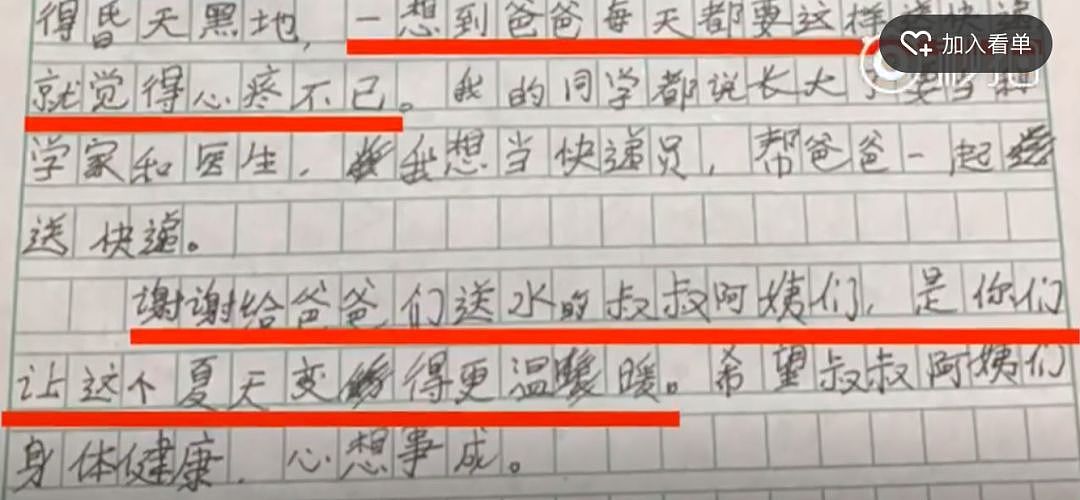 得昏天黑地，一想到爸爸每天都要这样送快递
加入看单
就觉得心疼不已。我的同学都说长大了要当科
学家和医生，我想当快递员，帮爸爸一起
送快递。
谢谢给爸爸们送水的叔叔阿姨们，是你们
让这个夏天变得更温暖。希望叔叔阿姨们
身体健康，心想事成。